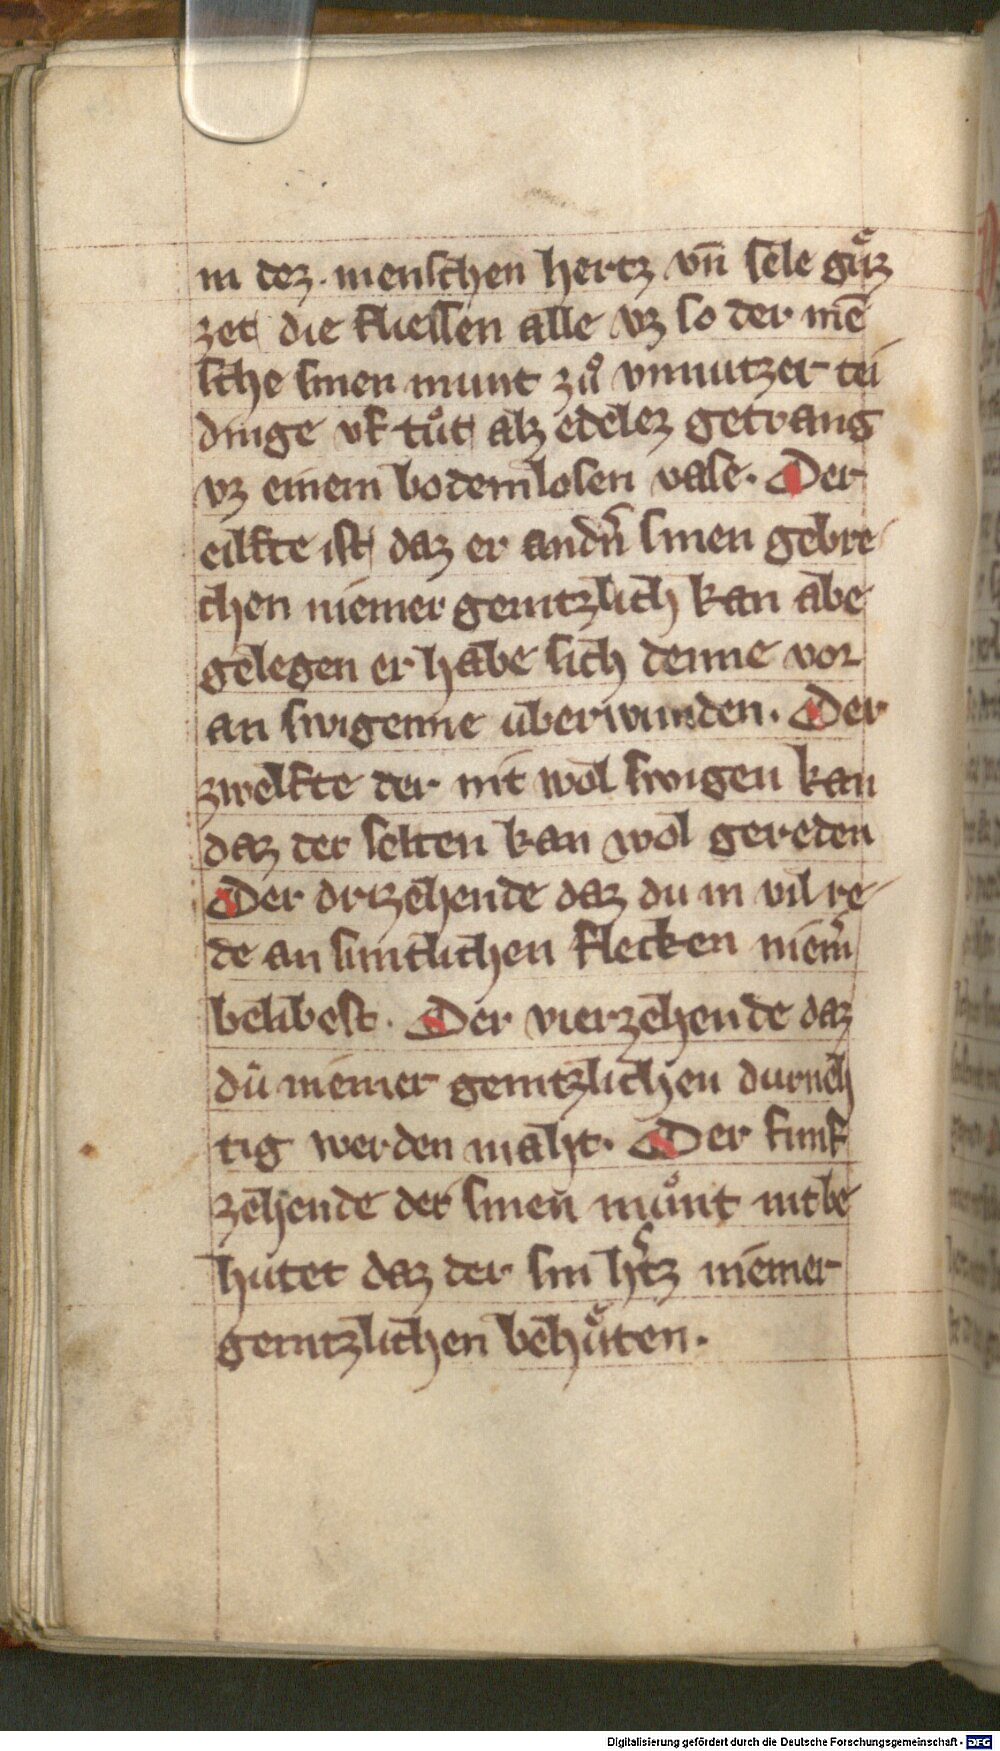 in dez menschen hertz vn̄ sele guͤz
zet die fliessen alle vz so der mē
sche sinen munt zuͦ vnnutzer tei
dinge vf tuͦt alz edelez getrang
vz einem bodemlosen vase. Der
eilfte ist daz er andn̄ sinen gebre
chen niemer gentzlich kan abe
gelegen er habe sich denne vor
an swigenne überwunden. Der
zwelfte der nit wol swigen kan
daz der selten kan wol gereden
Der drizehende daz du in vil re
de an suntlichen flecken niem̄
belibest. Der vierzehende daz
dü niemer gentzlichen durneh
tig werden maht. Der funf
zehende der sinen muͦnt nit be
hütet daz der sin h̓tz niemer
gentzlichen behuͤten.
Digitalisierung gefördert durch die Deutsche Forschungsgemeinschaft - DFG